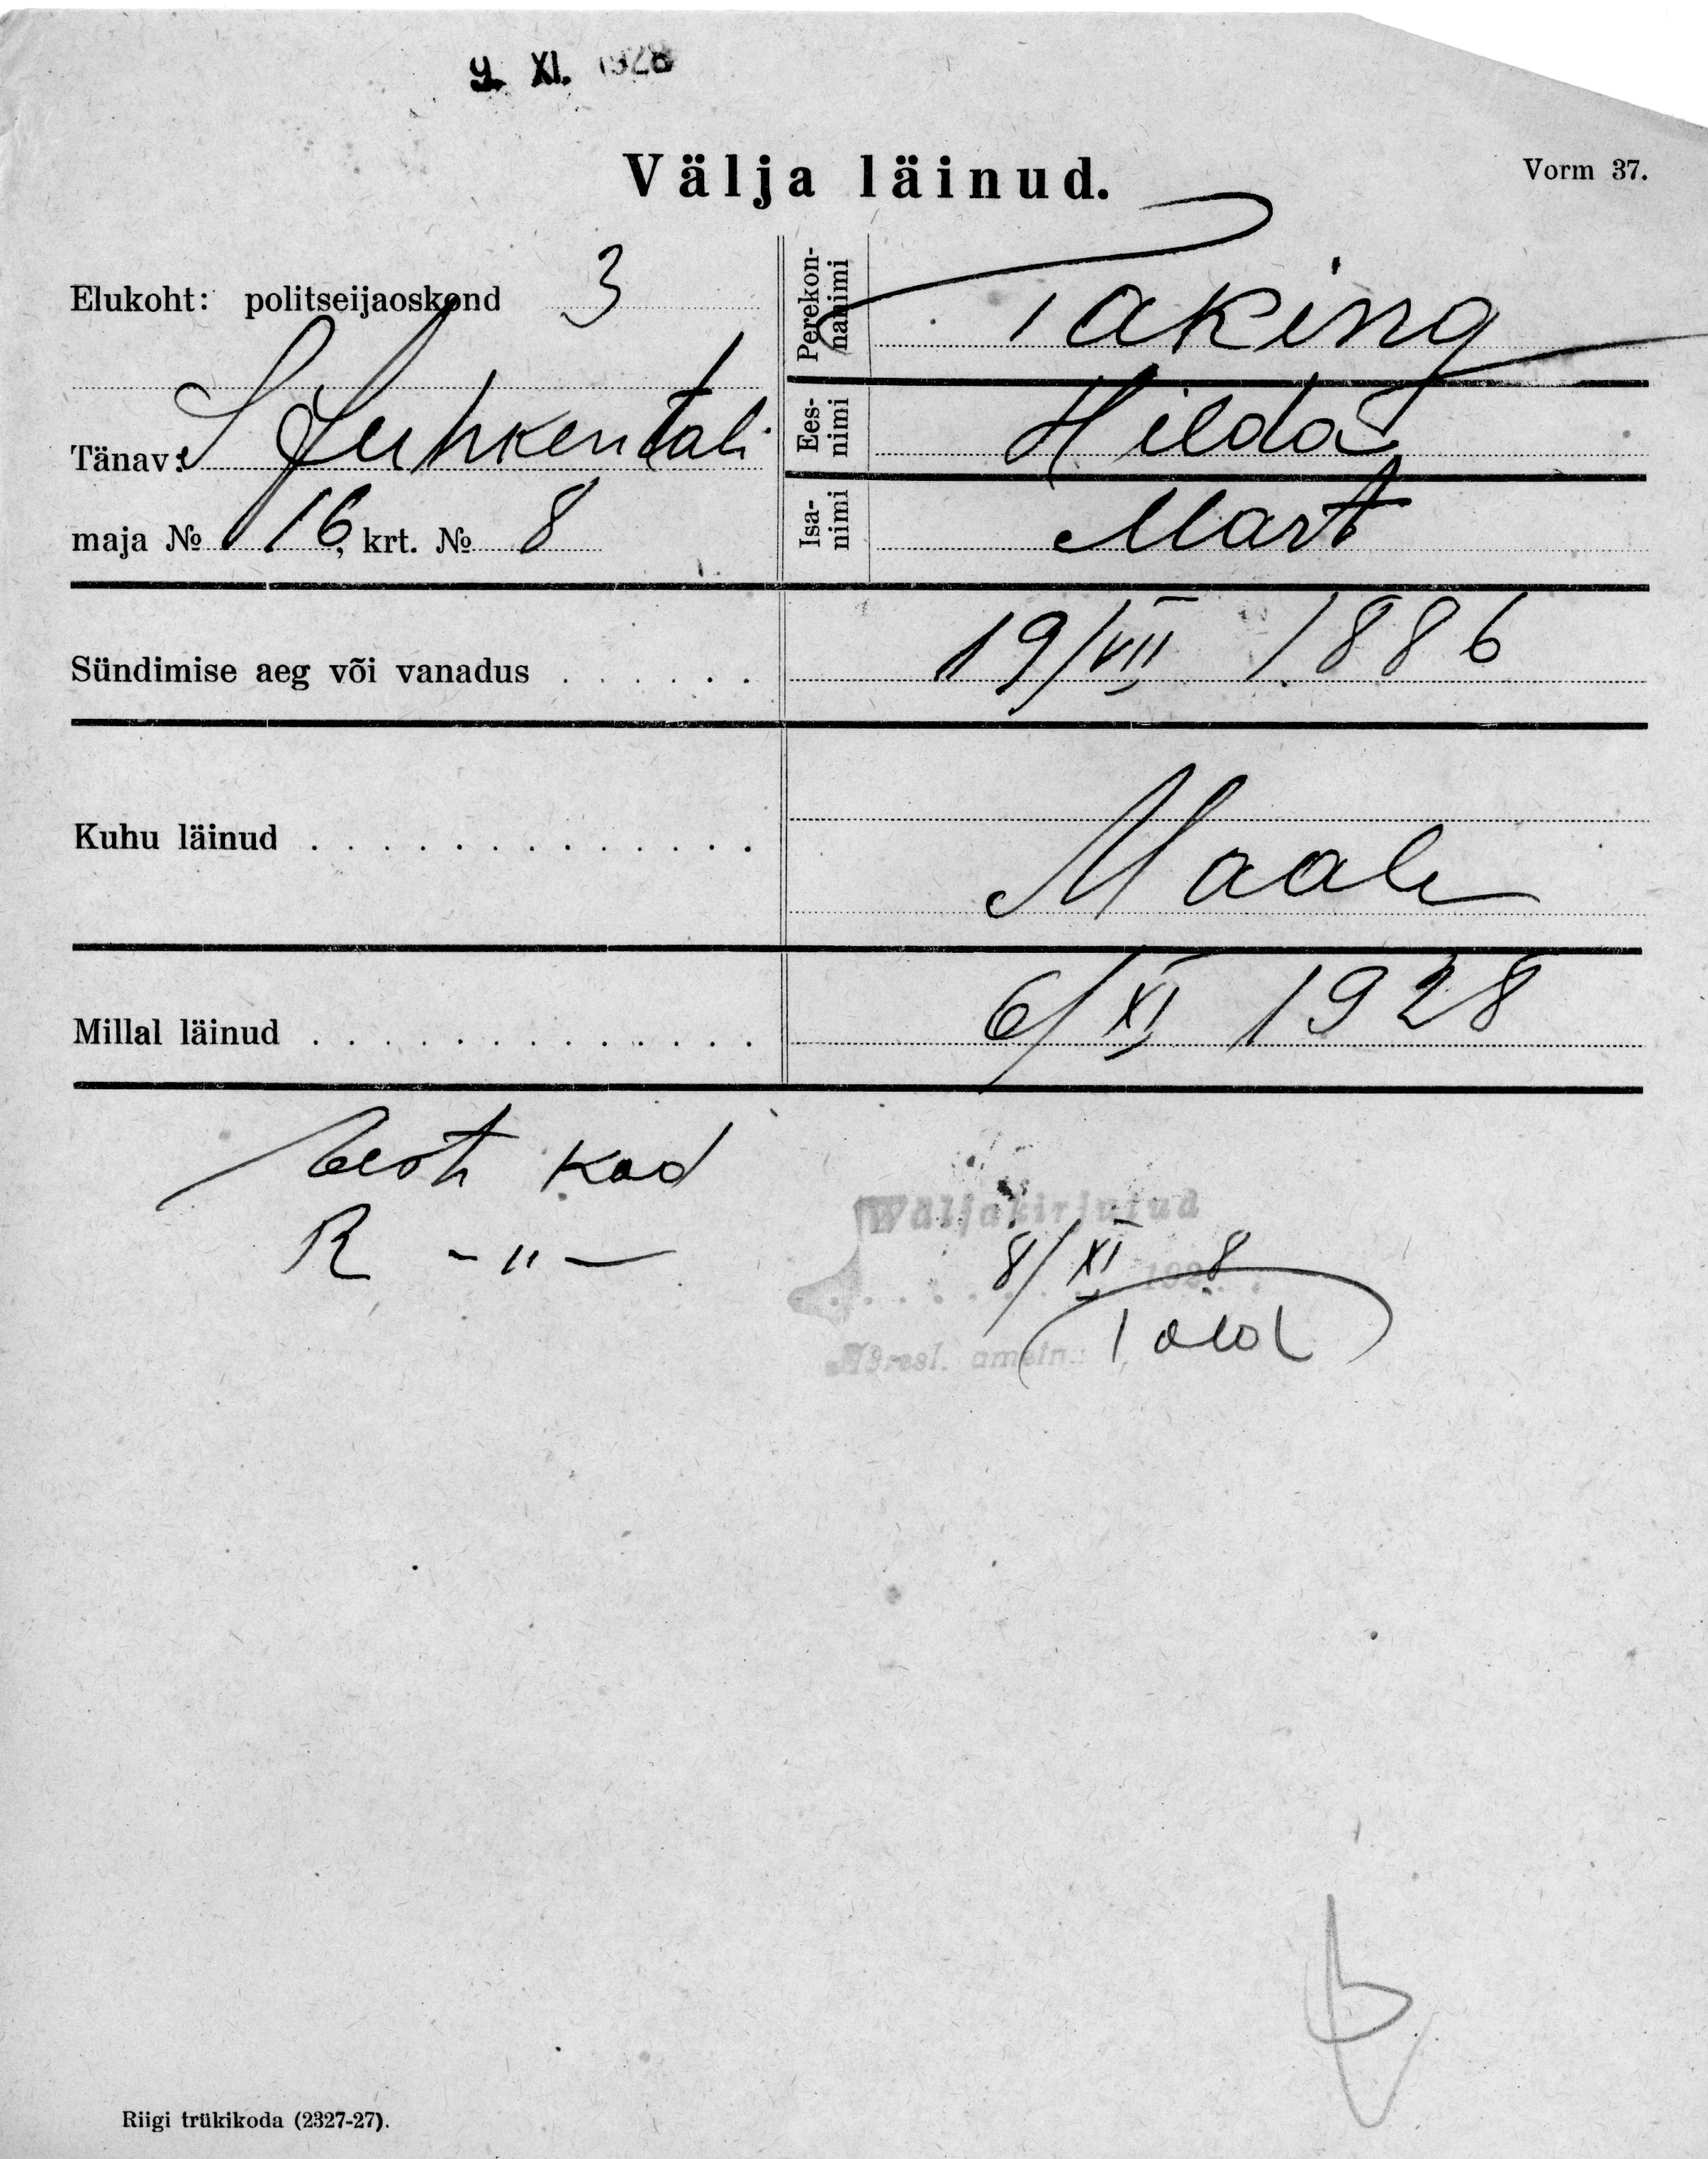 9. XI. 1928
Välja läinud.
Vorm 37.
Elukoht: politseijaoskond 3
Tänav: S Juhkentali
maja № 16, krt. № 8
Perekonnanimi Taking
Eesnimi Hilda
Isanimi Mart
Sündimise aeg või vanadus . . . . . . 19/VII 1886
Kuhu läinud . . . . . . . . . . . . . Maale
Millal läinud . . . . . . . . . . . . . 6/XI 1928
Eesti kod
R -"-
Väljakirjutud
8/XI 1928
Adresl. ametn.:
Riigi trükikoda (2327-27).